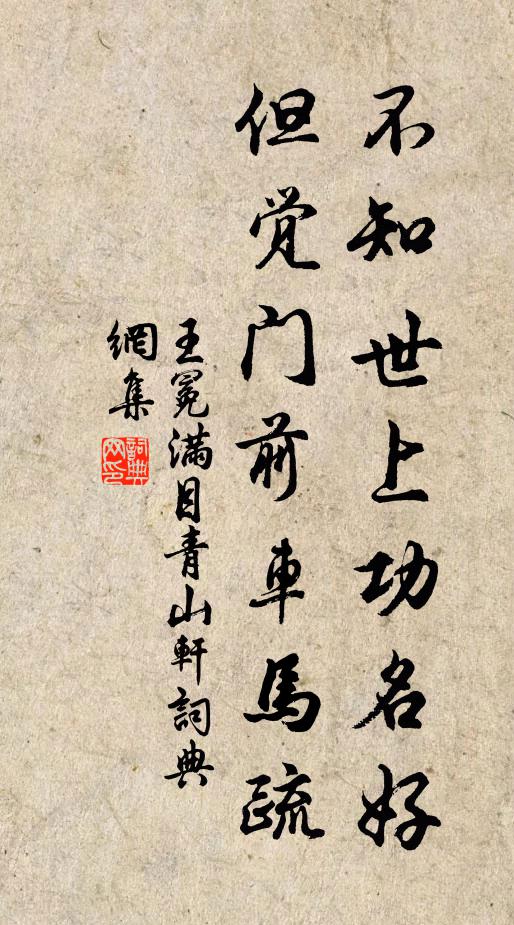 不知世上功名好
但觉门前車馬疏
王冕满目青山軒詞典
網集
詞典网印